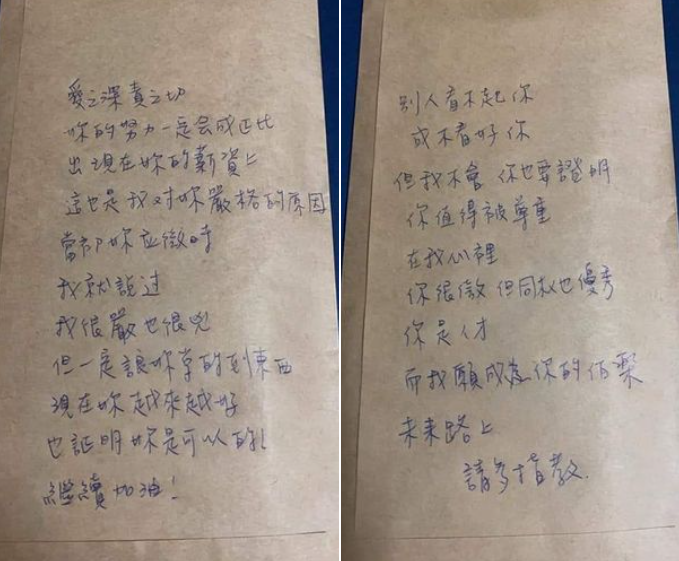 愛之深責之切
妳的努力一定会成正比
出現在妳的薪資上
這也是我对妳嚴格的原因
當初妳应徵時
我就說过
我很嚴也很兇
但一定讓妳學的到東西
現在妳越來越好
也証明妳是可以的!
繼續加油!
別人看不起你
或不看好你
但我不會 你也要證明
你值得被尊重
在我心裡
你很傲 但同
也優秀
你是人才
而我願成為你的伯樂
未来路上
請多指教.